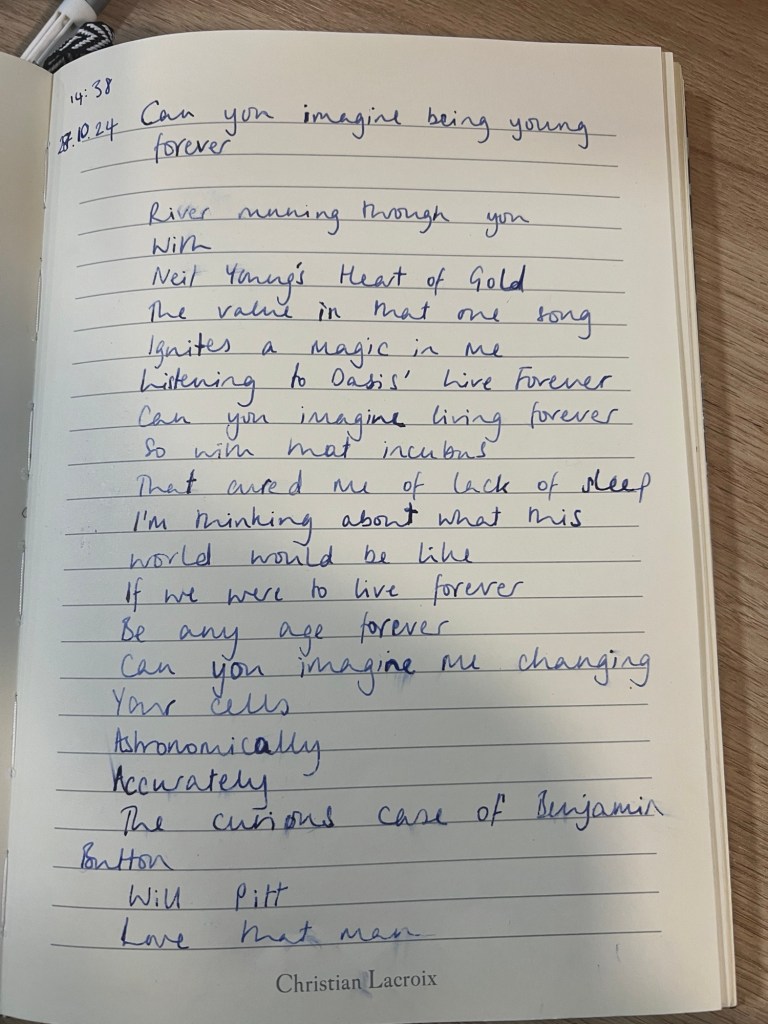 14:38
27.10.24 Can you imagine being young
forever
River running through you
With
Neil Young's Heart of Gold
The value in that one song
Ignites a magic in me
Listening to Oasis' Live Forever
Can you imagine living forever
So with that incubus
That cured me of lack of sleep
I'm thinking about what this
world would be like
If we were to live forever
Be any age forever
Can you imagine me changing
Your cells
Astronomically
Accurately
The curious case of Benjamin
Button
Will Pitt
Love that man
Christian Lacroix